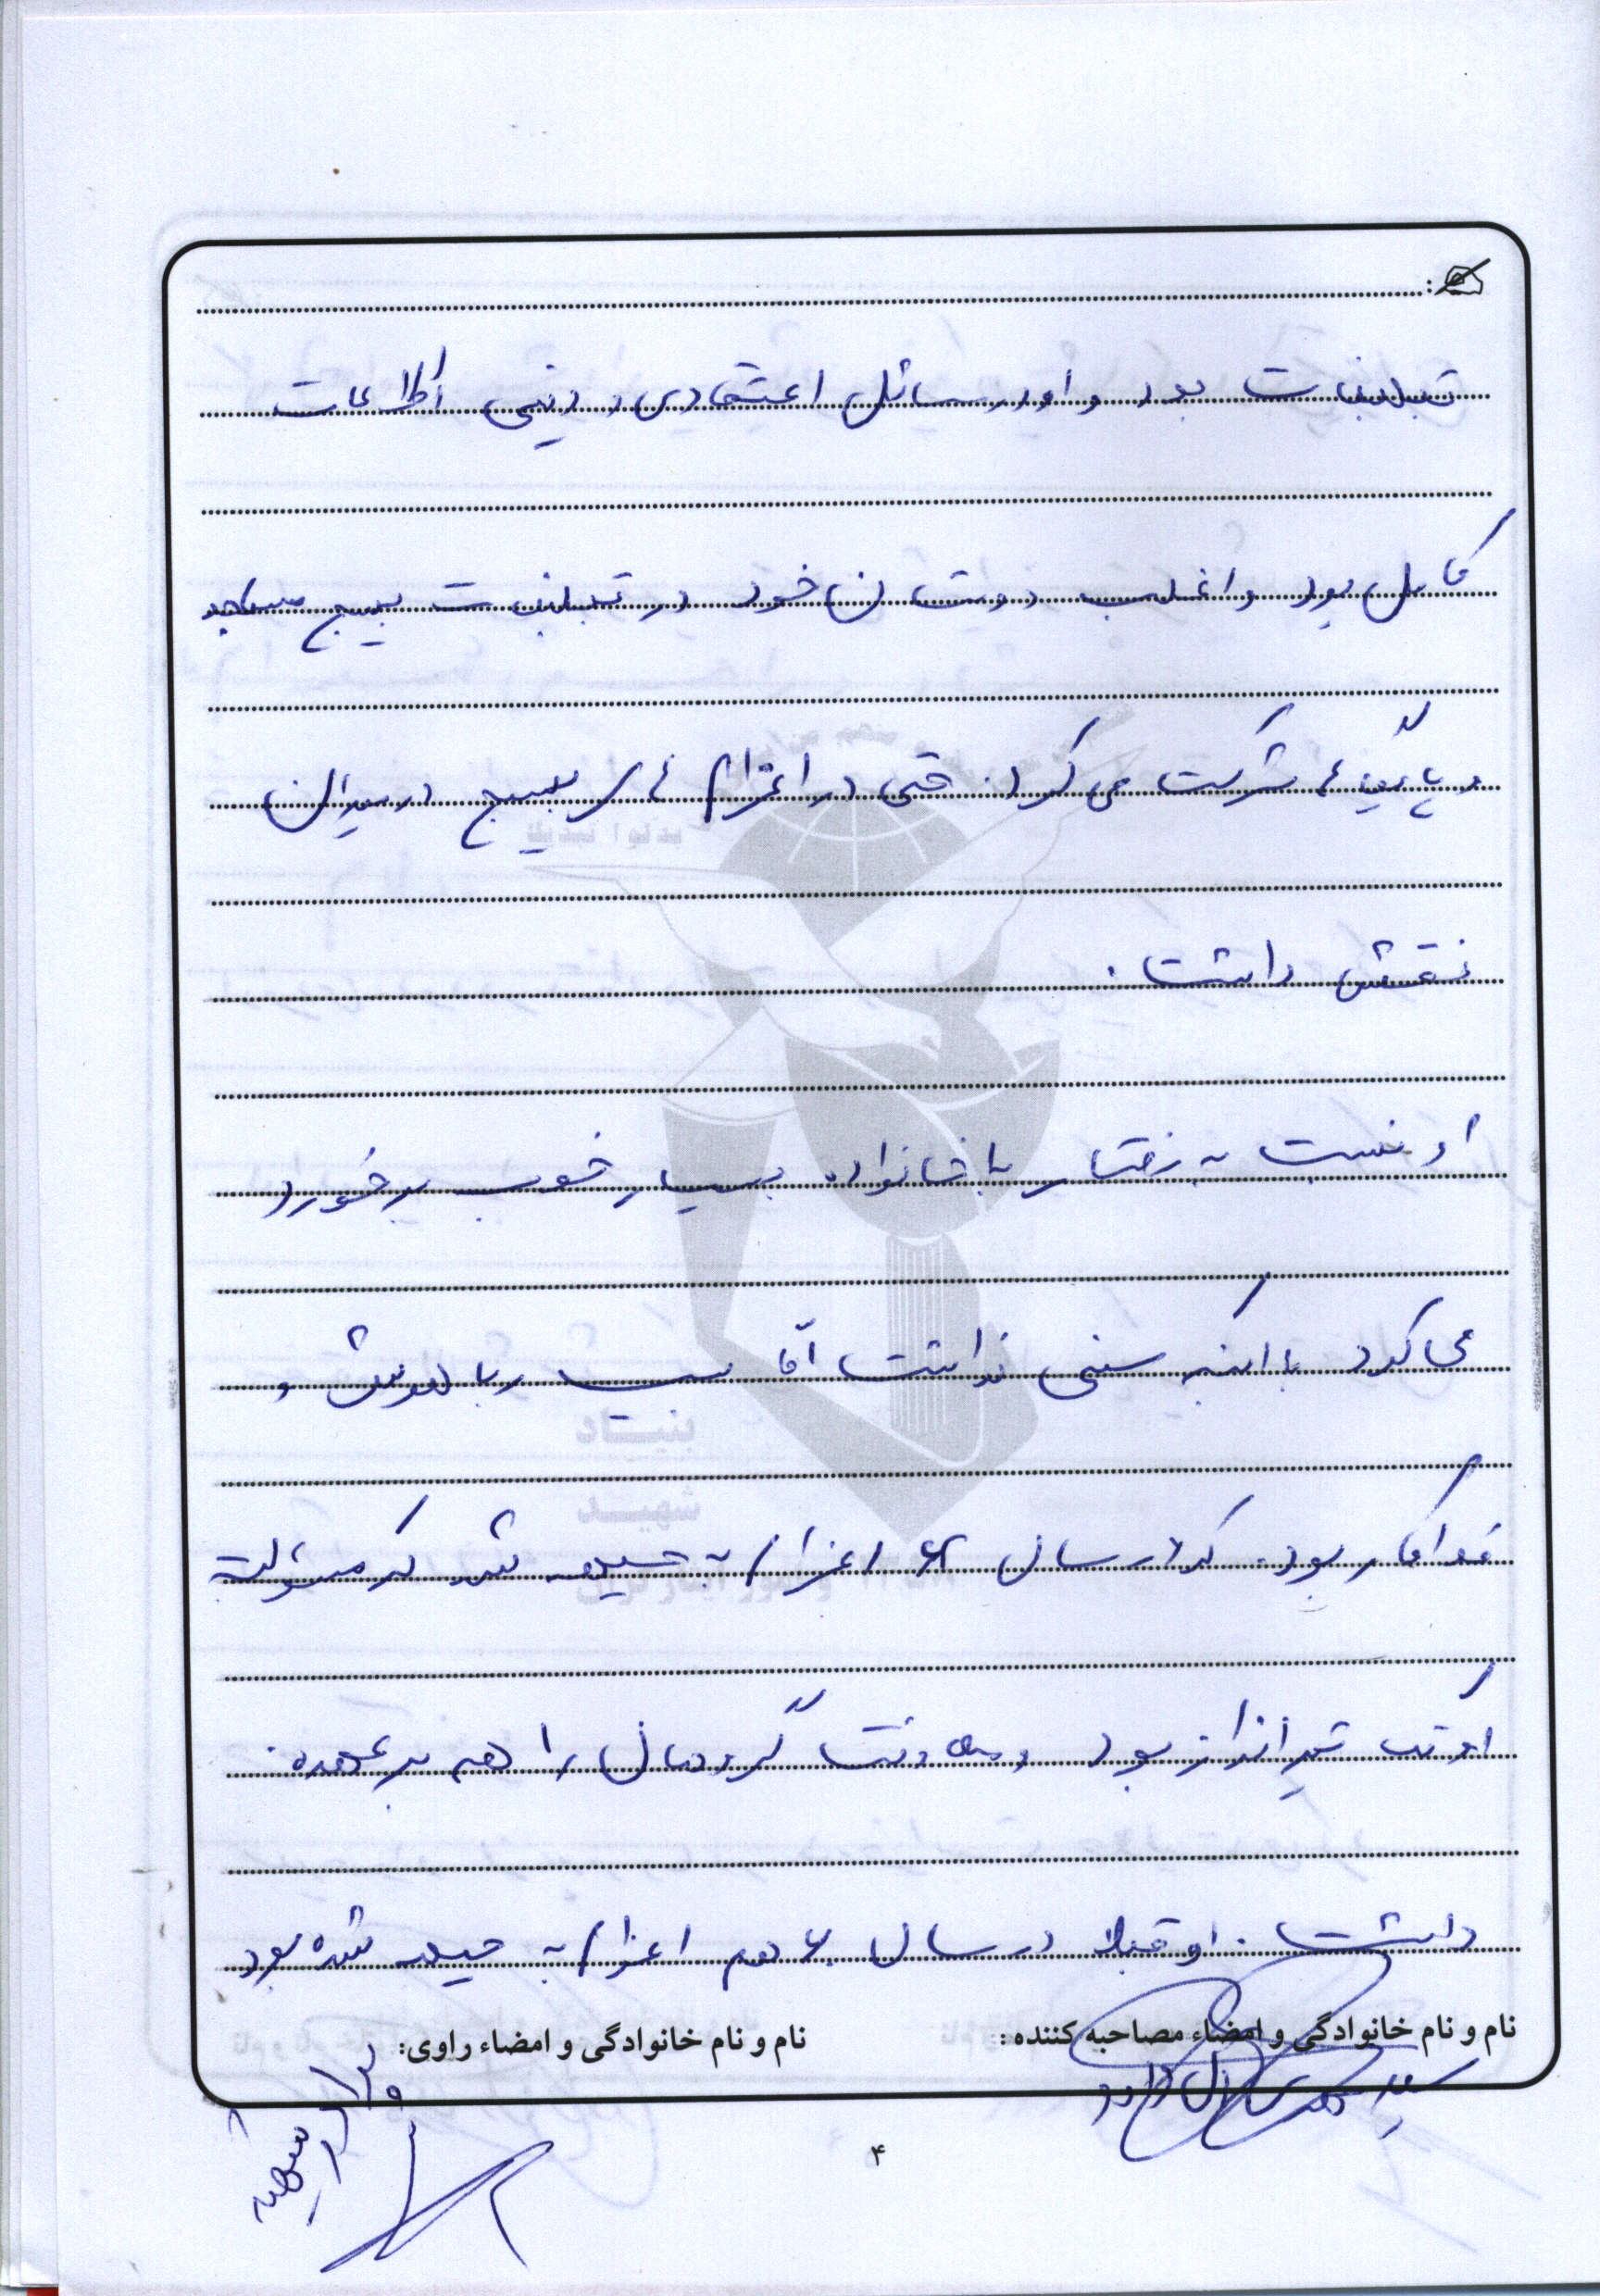 تبلیغات بود و او در مسائل اعتقادی و دینی اطلاعات
کامل بود و اغلب دوستان خود در تبلیغات بسیج مساجد
و پایگاه ها شرکت می کرد. حتی در اعزام های بسیج در میدان
نقش داشت.
او نسبت به رفتار با خانواده بسیار خوب برخورد
می کرد با اینکه سنی نداشت اما بسیار با هوش و
فداکار بود. که در سال اعزام به جبهه شد که مسئولیت
تیرانداز بود و معاونت گروهان را هم بر عهده
داشت. او قبلا در سال ۶۰ هم اعزام به جبهه شده بود
نام و نام خانوادگی و امضاء مصاحبه کننده:
نام و نام خانوادگی و امضاء راوی:
۴